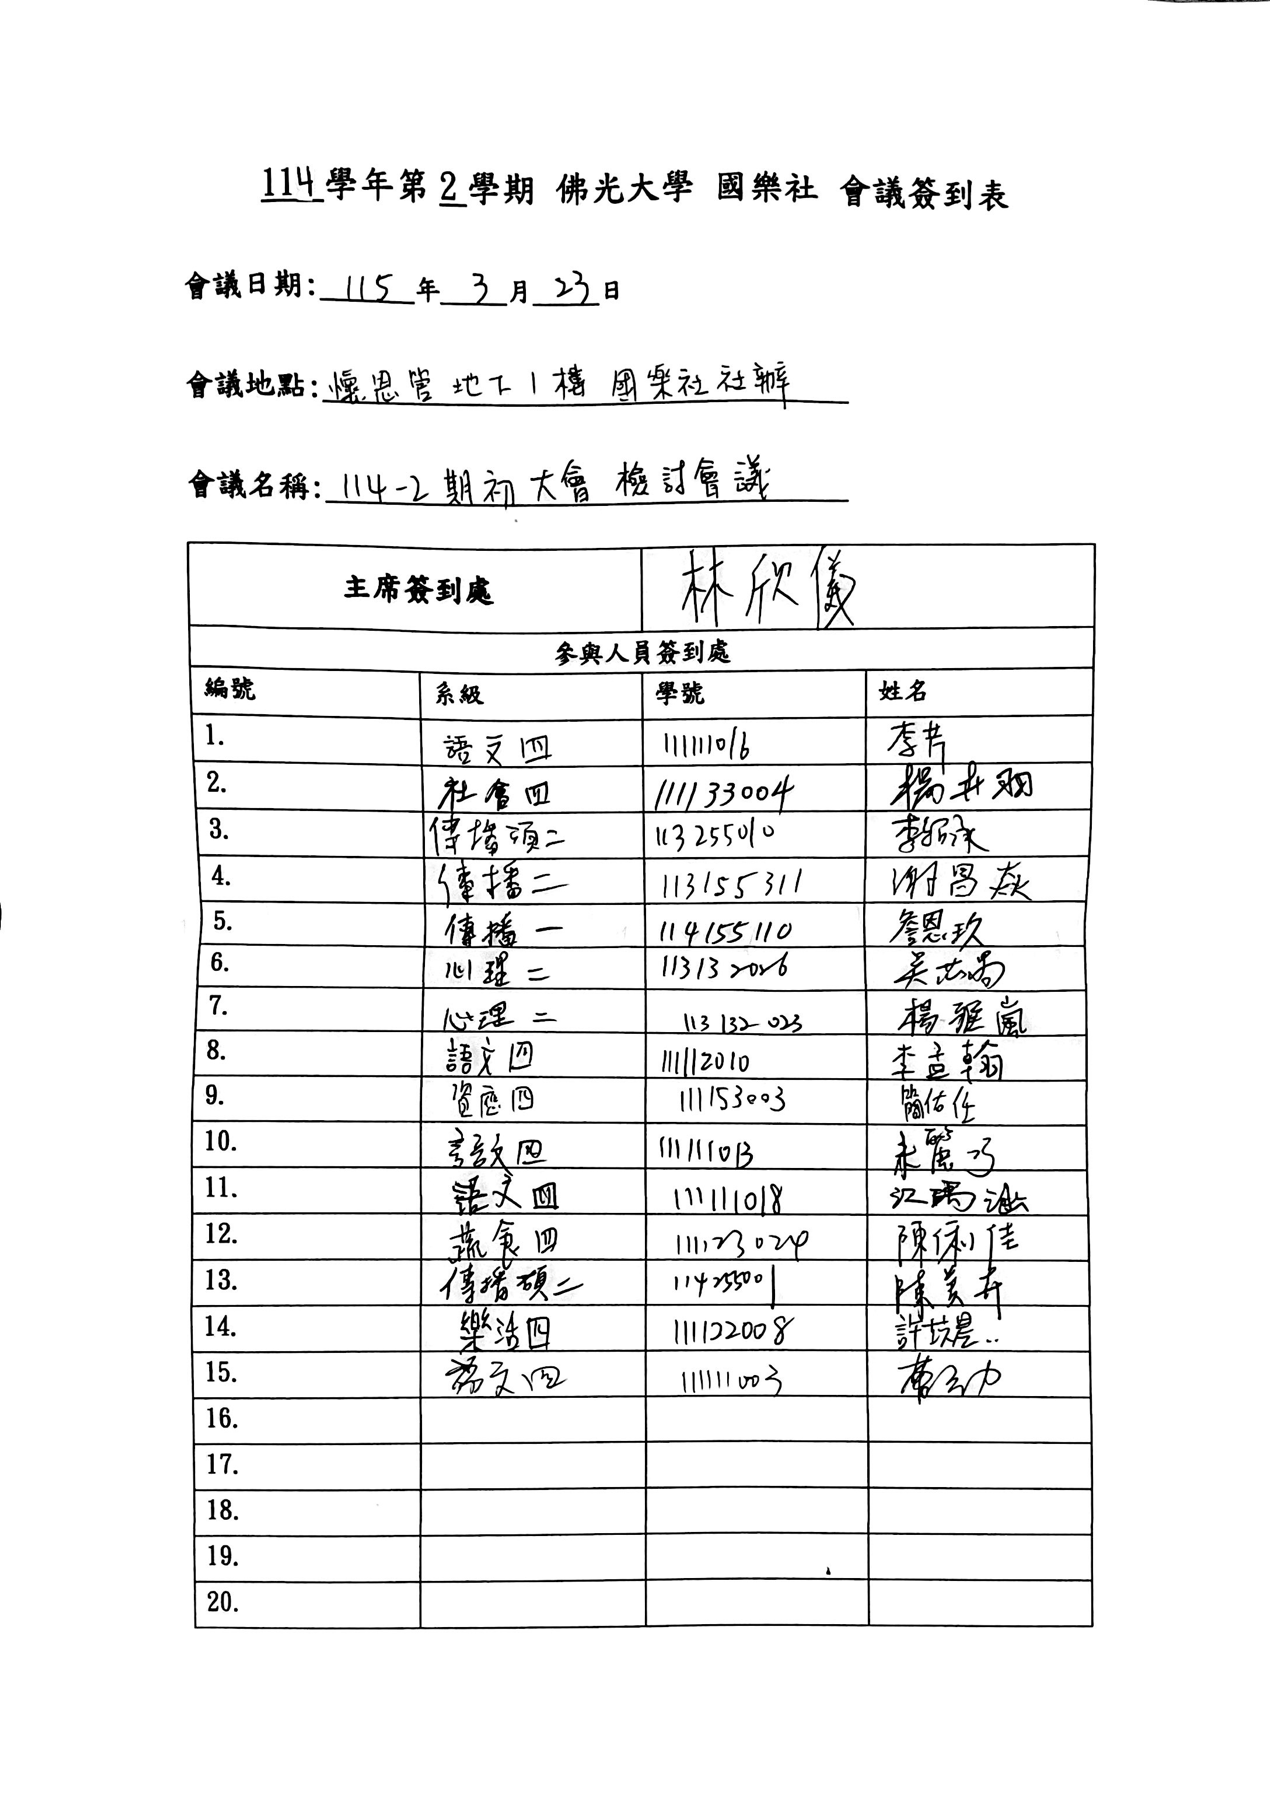 114學年第2學期 佛光大學 國樂社 會議簽到表
會議日期: 115 年 3 月 23 日
會議地點: 懷恩管地下1樓 國樂社社辦
會議名稱: 114-2期初大會 檢討會議
主席簽到處 林欣儀
參與人員簽到處
編號 系級 學號 姓名
1. 語文四 111111016 李
2. 社會四 111133004 楊
3. 傳播碩二 113255010 李
4. 傳播二 113155311 謝昌焱
5. 傳播一 114155110 詹恩玖
6. 心理二 113132026 吳
7. 心理二 113132023 楊雅嵐
8. 語文四 111112010 李孟翰
9. 資應四 111153003 簡佑任
10. 語文四 111111013
11. 語文四 111111018 江
12. 蔬食四 111123024 陳俐佳
13. 傳播碩二 114255001 陳美卉
14. 樂活四 111122008 許
15. 語文四 111111003
16.
17.
18.
19.
20.